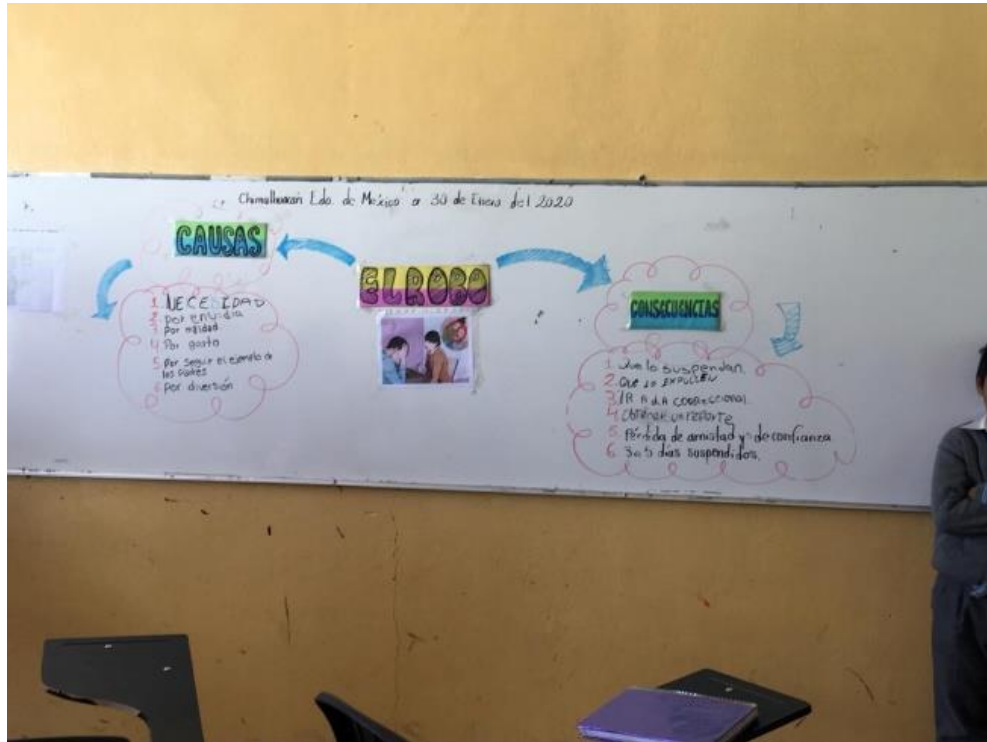 Chimalhuacán Edo. de México a 30 de Enero del 2020
CAUSAS
1 NECESIDAD
2 por envidia
3 Por maldad
4 Por gusto
5 Por seguir el ejemplo de
los padres
6 Por diversión
EL ROBO
CONSECUENCIAS
1 Que lo suspendan.
2. Que lo EXPULSEN
3. IR A LA correccional.
4 Obtener un reporte
5. Pérdida de amistad y de confianza
6. 3 a 5 días suspendidos.